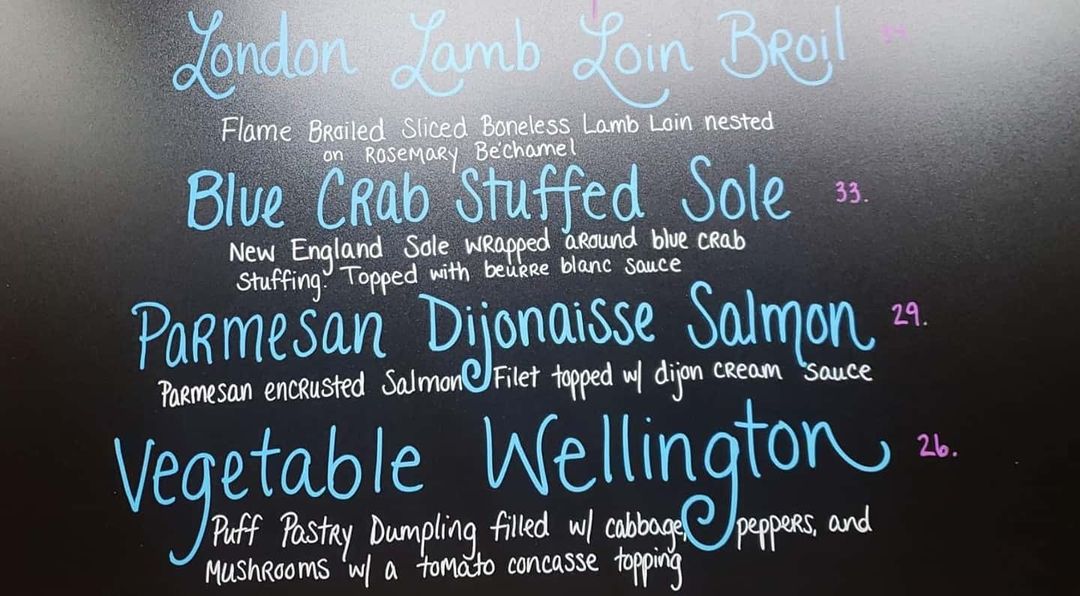 London Lamb Loin Broil
Flame Broiled Sliced Boneless Lamb Loin nested
on Rosemary Béchamel
Blue Crab Stuffed Sole 33.
New England Sole wrapped around blue crab
Stuffing. Topped with beurre blanc sauce
Parmesan Dijonaisse Salmon 29.
Parmesan encrusted Salmon Filet topped w/ dijon cream sauce
Vegetable Wellington 26.
Puff Pastry Dumpling filled w/ cabbage, peppers, and
Mushrooms w/ a tomato concasse topping